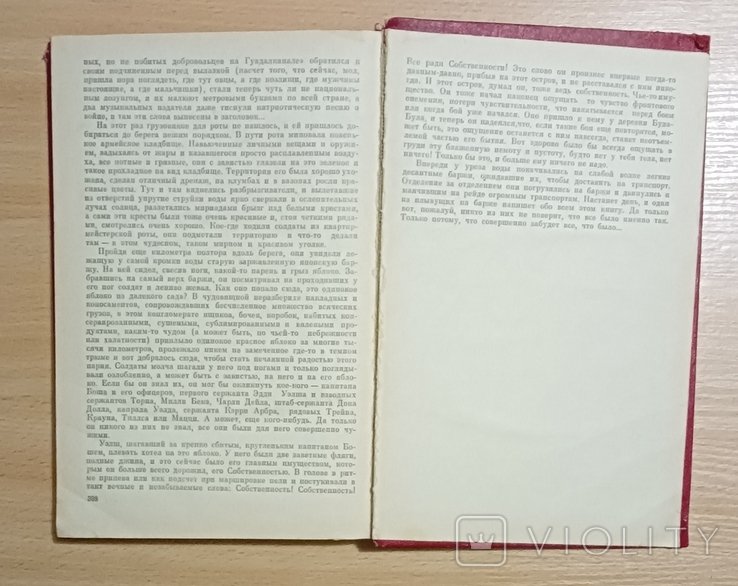 ных, но не побитых добровольцев на Гуадалканале» обратился к
своим подчиненным перед вылазкой (насчет того, что сейчас, мол,
пришла пора поглядеть, где тут овцы, а где козлищи, где мужчины
настоящие, а где мальчишки), стали теперь чуть ли не националь-
ным лозунгом, и их малюют метровыми буквами по всей стране, а
два музыкальных издателя даже тиснули патриотическую песню о
войне, а там эти слова вынесены в заголовок...
На этот раз грузовиков для роты не нашлось, и ей пришлось до-
бираться до берега пешим порядком. В пути рота миновала новень-
кое армейское кладбище. Навьюченные личными вещами и оружи-
ем, задыхаясь от жары и казавшегося просто расплавленным возду-
ха, все потные и грязные, они с завистью глазели на это зеленое и
такое прохладное на вид кладбище. Территория его была хорошо ухо-
жена, сделан отличный дренаж, на клумбах и в вазонах росли кра-
сивые цветы. Тут и там виднелись разбрызгиватели, и вылетавшие
из отверстий упругие струйки воды ярко сверкали в ослепительных
лучах солнца, разлетались мириадами брызг над белыми крестами,
а сами эти кресты были тоже очень красивые и, стоя четкими ряда-
ми, смотрелись очень хорошо. Кое-где ходили солдаты из квартир-
мейстерской роты, они подметали территорию и что-то делали
там — в этом чудесном, таком мирном и красивом уголке.
Пройдя еще километра полтора вдоль берега, они увидели ле-
жащую у самой кромки воды старую заржавленную японскую бар-
жу. На ней сидел, свесив ноги, какой-то парень и грыз яблоко. За-
бравшись на самый верх баржи, он посматривал на проходивших у
его ног солдат и лениво жевал. Как оно попало сюда, это одинокое
яблоко из далекого сада? В чудовищной неразберихе накладных и
коносаментов, сопровождавших бесчисленное множество всяческих
грузов, в этом конгломерате ящиков, бочек, коробок, набитых кон-
сервированными, сушеными, сублимированными и валеными про-
дуктами, каким-то чудом (а может быть, по чьей-то небрежности
или халатности) приплыло одинокое красное яблоко за многие ты-
сячи километров, пролежало никем не замеченное где-то в темном
трюме и вот добралось сюда, чтобы стать нечаянной радостью этого
парня. Солдаты молча шагали у него под ногами и только погляды-
вали озлобленно, а может быть с завистью, на него и на его ябло-
ко. Если бы он знал их, он мог бы окликнуть кое-кого — капитана
Боша и его офицеров, первого сержанта Эдди Уэлша и взводных
сержантов Торна, Милли Бека, Чарли Дейла, штаб-сержанта Дона
Долла, капрала Уилда, сержанта Кэрри Арбра, рядовых Трейна,
Крауна, Тиллса или Мацци. А может, еще кого-нибудь. Да только
он никого из них не знал, все они были для него совершенно чу-
жими.
Уэлш, шагавший за крепко сбитым, кругленьким капитаном Бо-
шем, плевать хотел на это яблоко. У него были две заветные фляги,
полные джина, и это сейчас было его главным имуществом, кото-
рым он больше всего дорожил, его Собственностью. В голове в рит-
ме припева или как подсчет при маршировке пели и постукивали в
такт вечные и незабываемые слова: Собственность! Собственность!
398
Все ради Собственности! Это слово он произнес впервые когда-то
давным-давно, прибыв на этот остров, и не расставался с ним нико-
гда. И этот остров, думал он, тоже ведь собственность. Чье-то иму-
щество. Он тоже начал наконец ощущать то чувство фронтового
онемения, потери чувствительности, что накатывается перед боем
или когда бой уже начался. Оно пришло к нему у деревни Була-
Була, и теперь он надеялся, что, если такие бои еще повторятся, мо-
жет быть, это ощущение останется с ним навсегда, станет неотъем-
лемой частью его бытия. Вот здорово было бы всегда ощущать в
груди эту блаженную немоту и пустоту, будто нет у тебя тела, нет
ничего! Только бы это, и больше ему ничего не надо.
Впереди у уреза воды покачивались на слабой волне легкие
десантные баржи, ожидавшие их, чтобы доставить на транспорт.
Отделение за отделением они погрузились на баржи и двинулись к
маячившим на рейде огромным транспортам. Настанет день, и один
из плывущих на барже напишет обо всем этом книгу. Да только
вот, пожалуй, никто из них не поверит, что все было именно так.
Только потому, что совершенно забудут все, что было...
VIOLITY